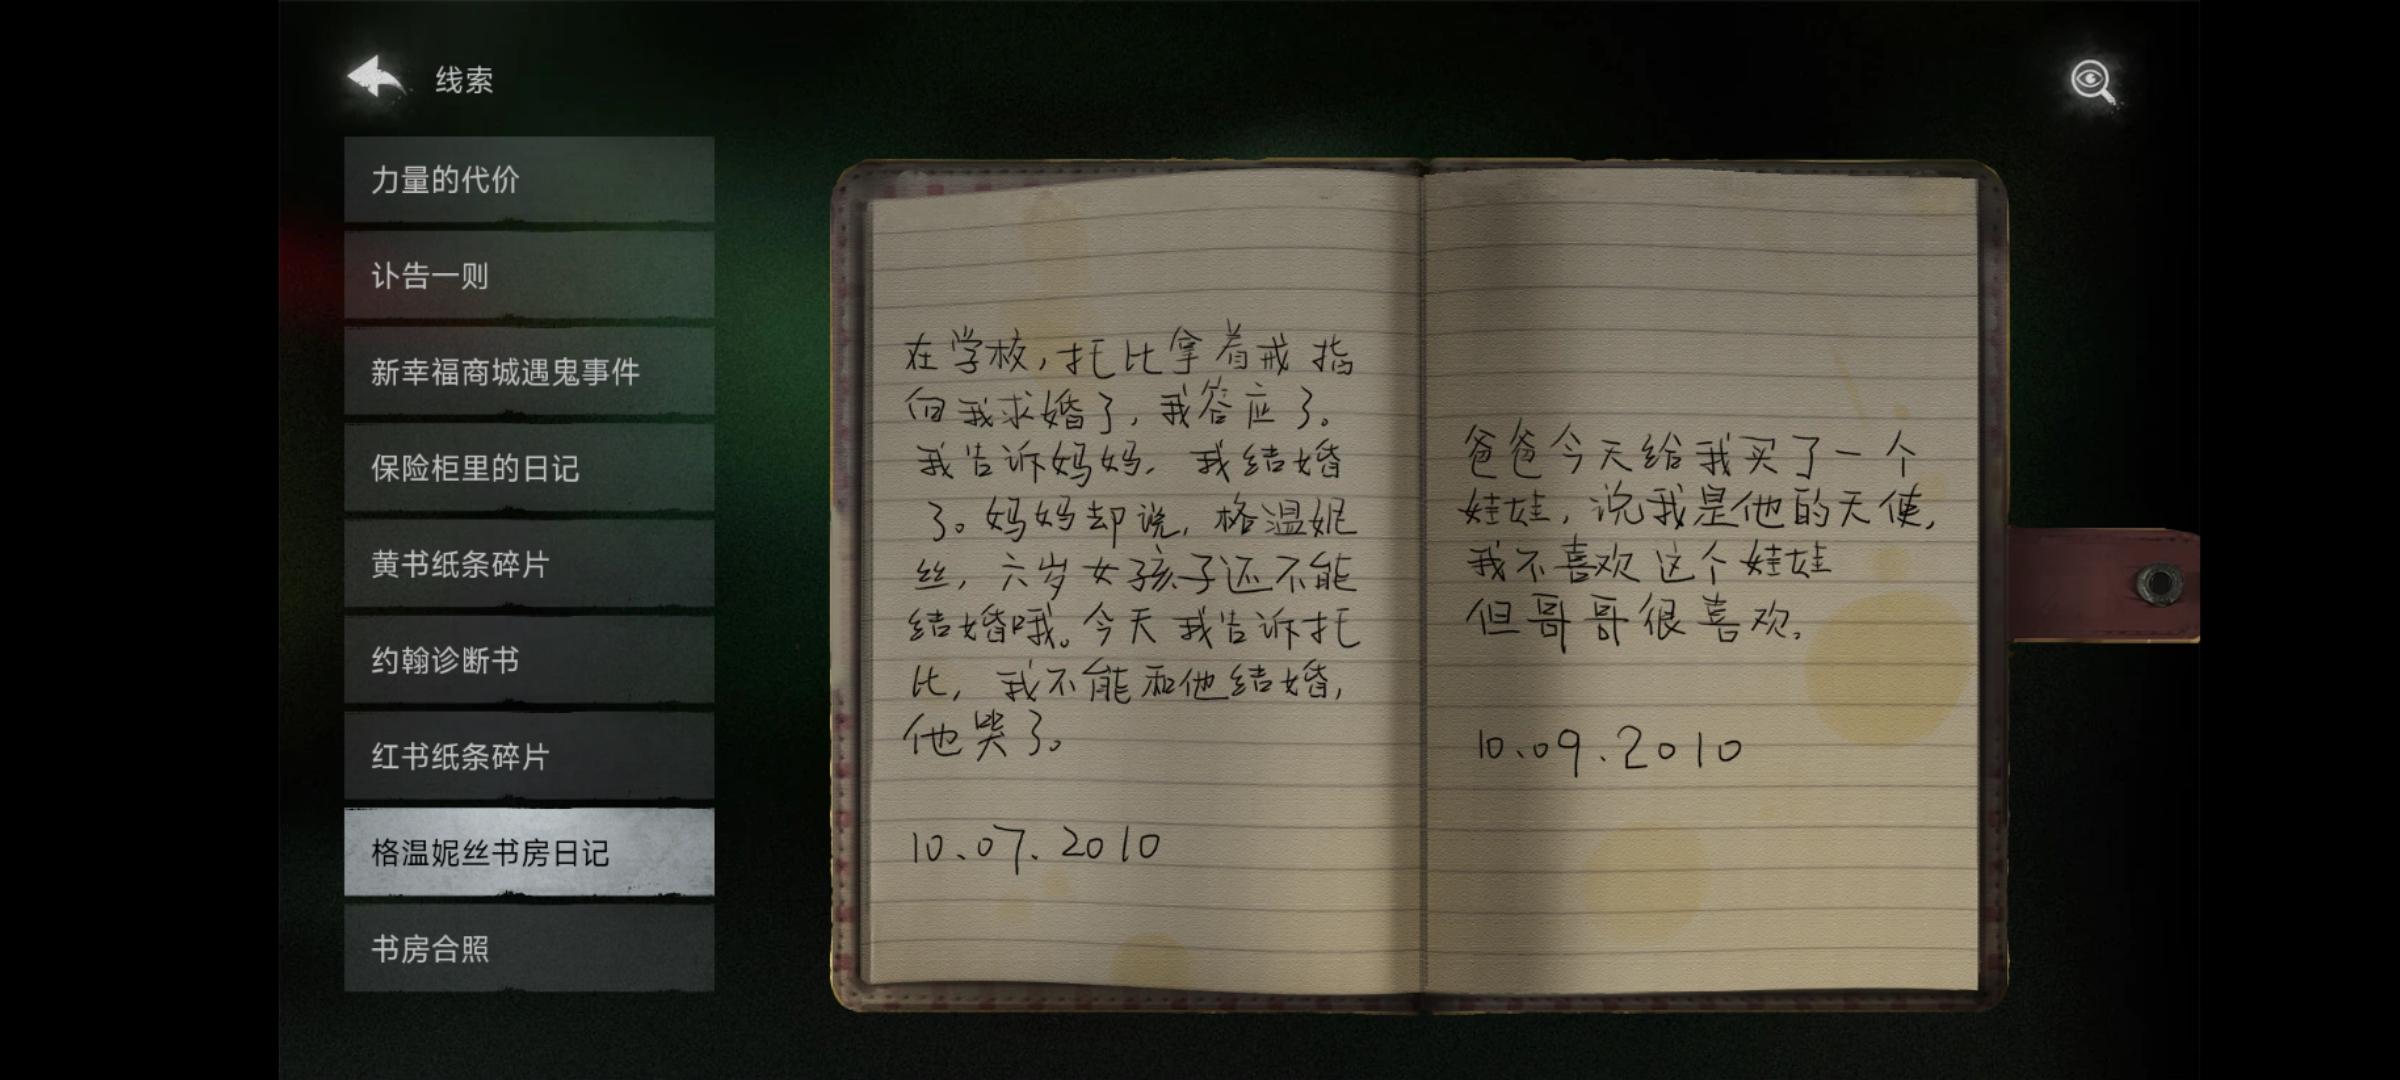 线索
力量的代价
讣告一则
新幸福商城遇鬼事件
保险柜里的日记
黄书纸条碎片
约翰诊断书
红书纸条碎片
格温妮丝书房日记
书房合照
在学校，托比拿着戒指
向我求婚了，我答应了。
我告诉妈妈，我结婚
了。妈妈却说，格温妮
丝，六岁女孩子还不能
结婚哦。今天我告诉托
比，我不能和他结婚，
他哭了。
10.07.2010
爸爸今天给我买了一个
娃娃，说我是他的天使，
我不喜欢这个娃娃
但哥哥很喜欢。
10.09.2010